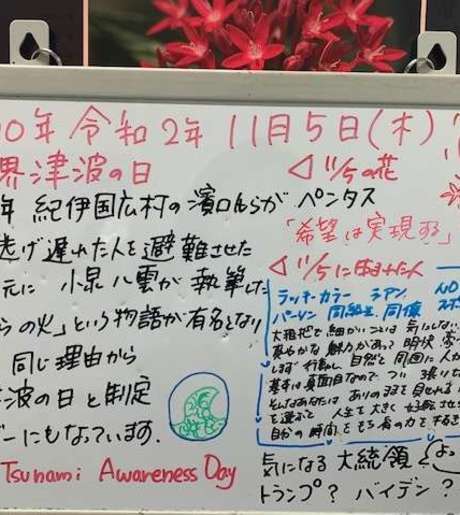 0年 令和2年 11月5日(木)
界津波の日
年 紀伊国広村の濱口らが
逃げ遅れた人を避難させた
元に 小泉八雲が執筆した
らの火」という物語が有名となり
同じ理由から
波の日と制定
デーにもなっています.
Tsunami Awareness Day
◁ 11/5の花
ペンタス
「希望は実現する」
◁ 11/5に生まれた人
ラッキーカラー シアン
パーソン 同級生、同僚
大胆で細かいことは気にしない
爽やかな魅力があって 明快
しまず行動し 自然と周囲に人が
基本は真面目なので つい 張り
そんなあなたは ありのままを見せれる
を選ぶと 人生を大きく好転させ
自分の時間をもち
気になる 大統領
トランプ? バイデン?